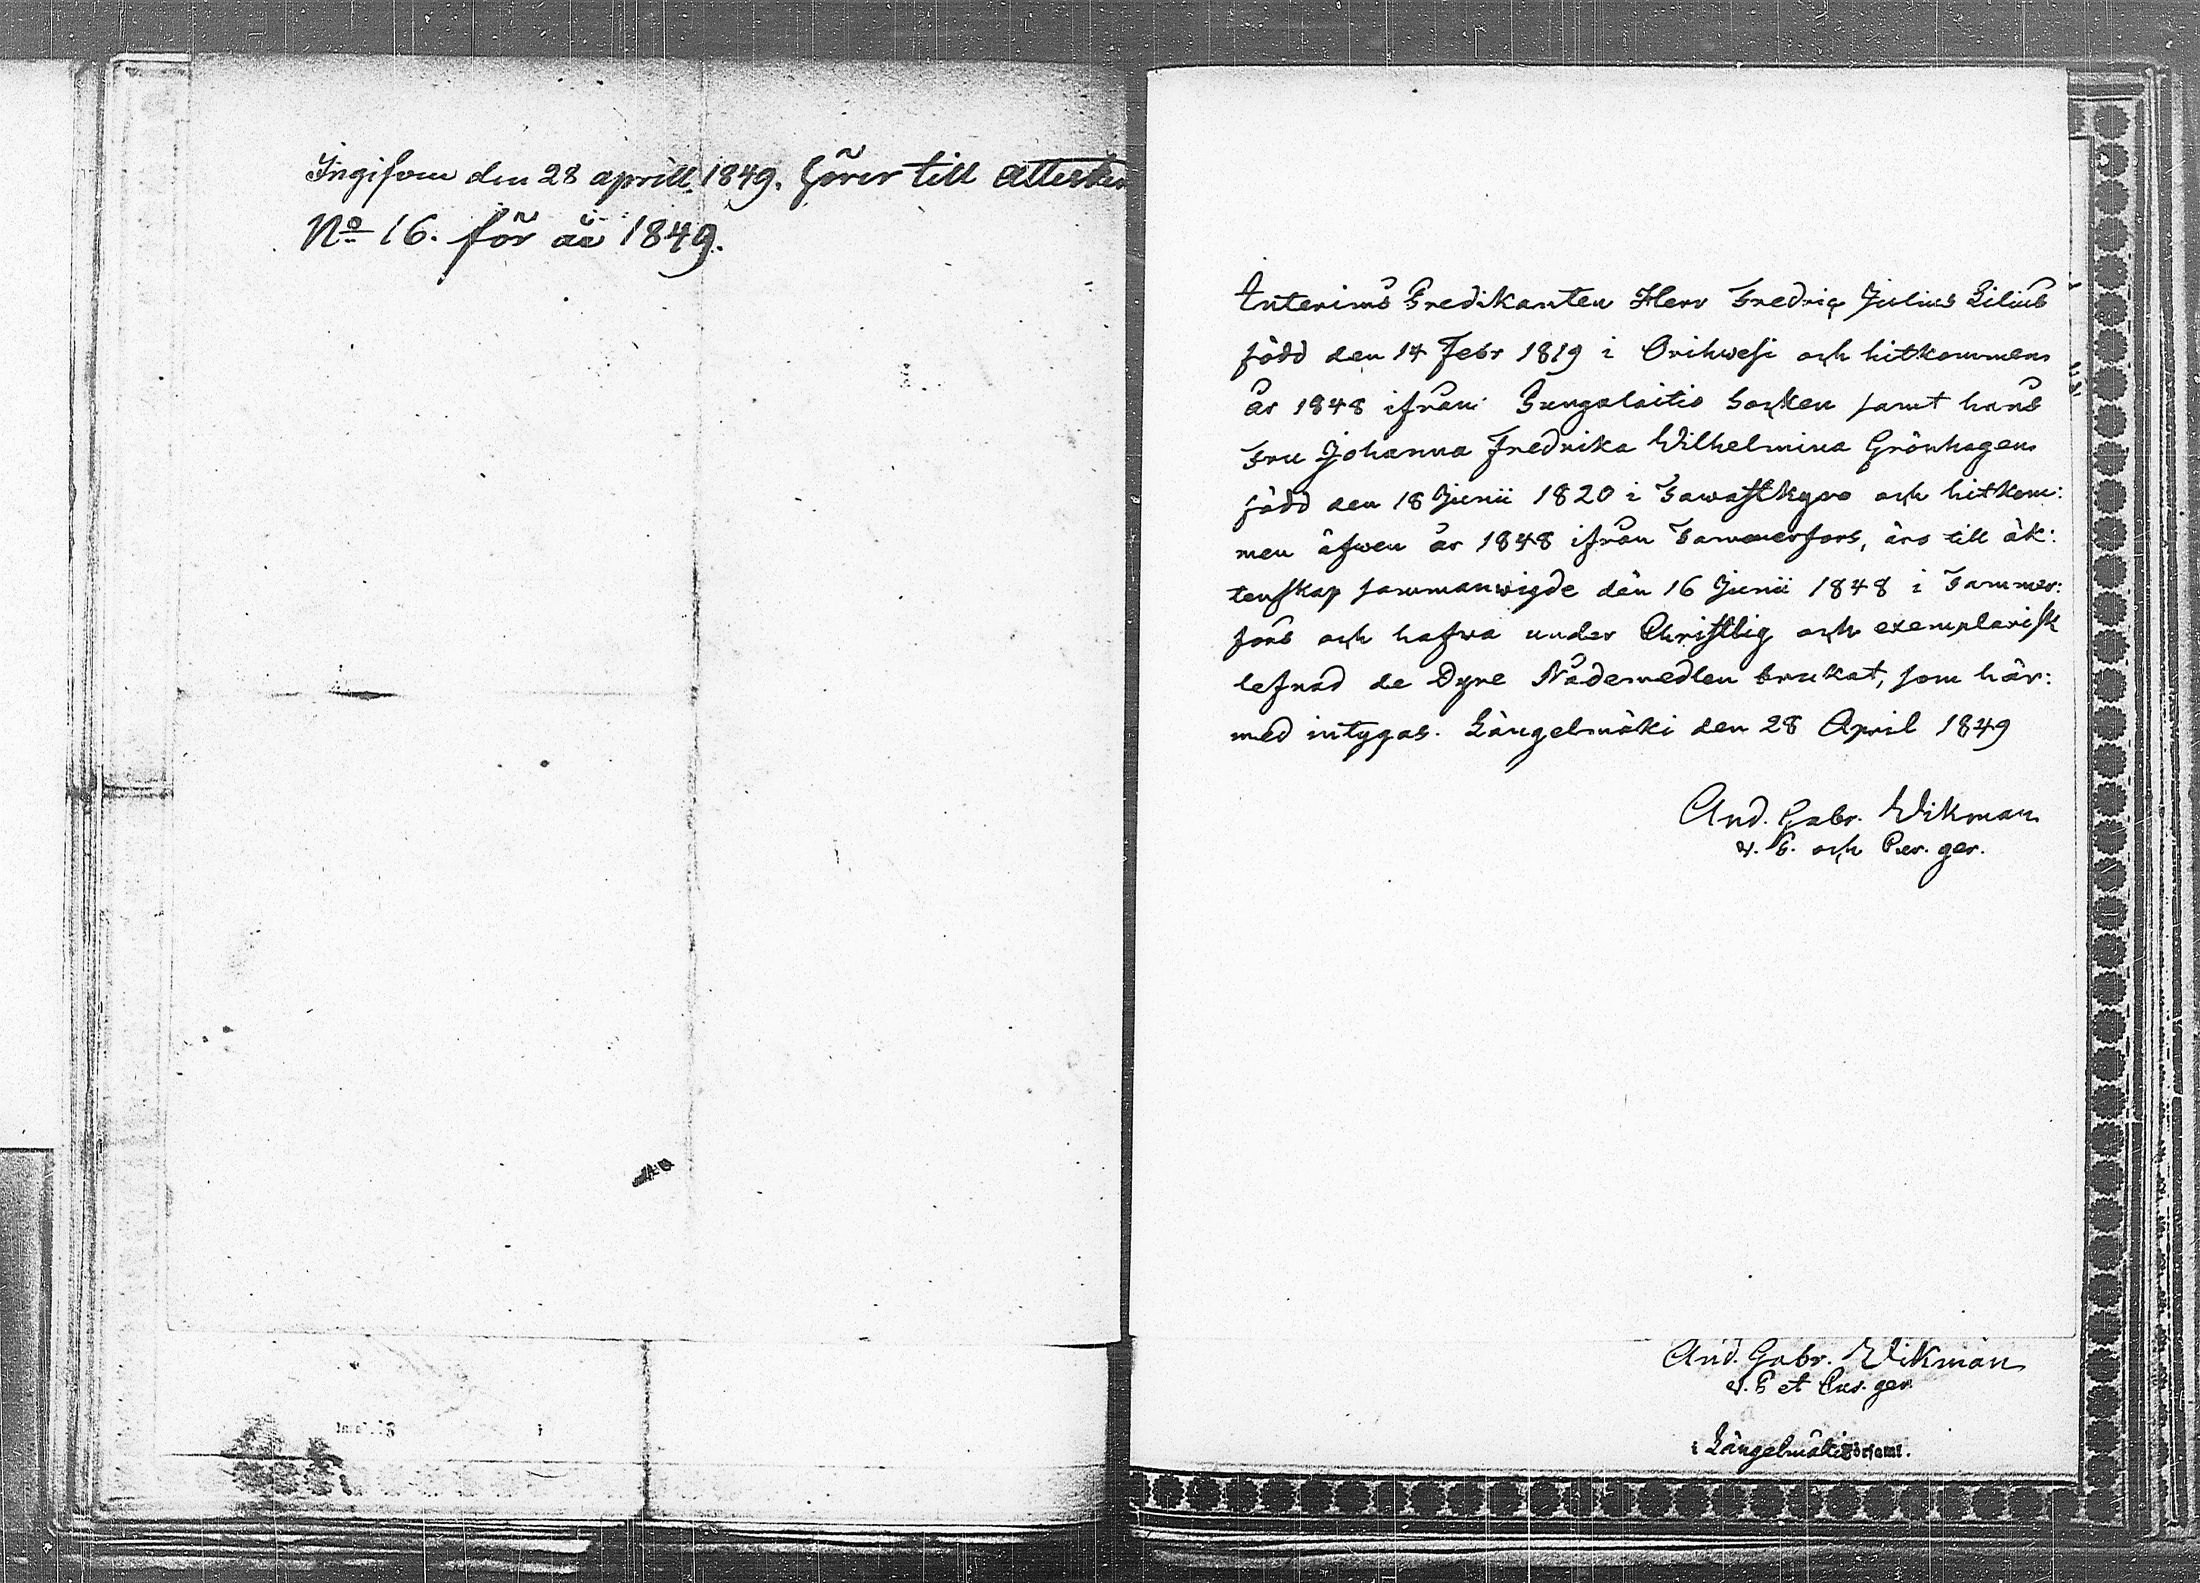 Ingifven den 28 aprill 1849. hörer till attesten
No 16. för år 1849.
Interims Predikanten Herr Fredric Julius Lilius
född den 14 Febr 1819 i Orihwesi och hitkommen
år 1848 ifrån Pungalaitio Socken samt hans
Fru Johanna Fredrika Wilhelmina Grönhagen
född den 18 Junii 1820 i Tawastkyro och hitkom:
men äfwen år 1848 ifrån Tammerfors, äro till äk:
tenskap sammanwigde den 16 Junii 1848 i Tammer:
fors och hafwa under Christlig och exemplarisk
lefnad de Dyre Nådemedlen brukat, som här:
med intygas. Längelmäki den 28 April 1849
And. Gabr. Wikman
v. P. och Pær. ger.
And. Gabr. Wikman
v. P et Pær. ger.
i Längelmäki Församl.